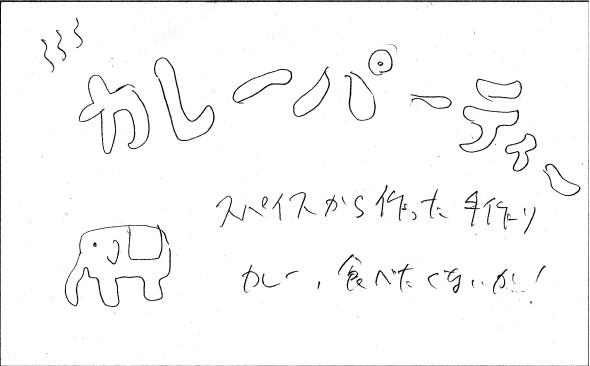 カレーパーティー
スパイスから作った手作り
カレー、食べたくないかい!